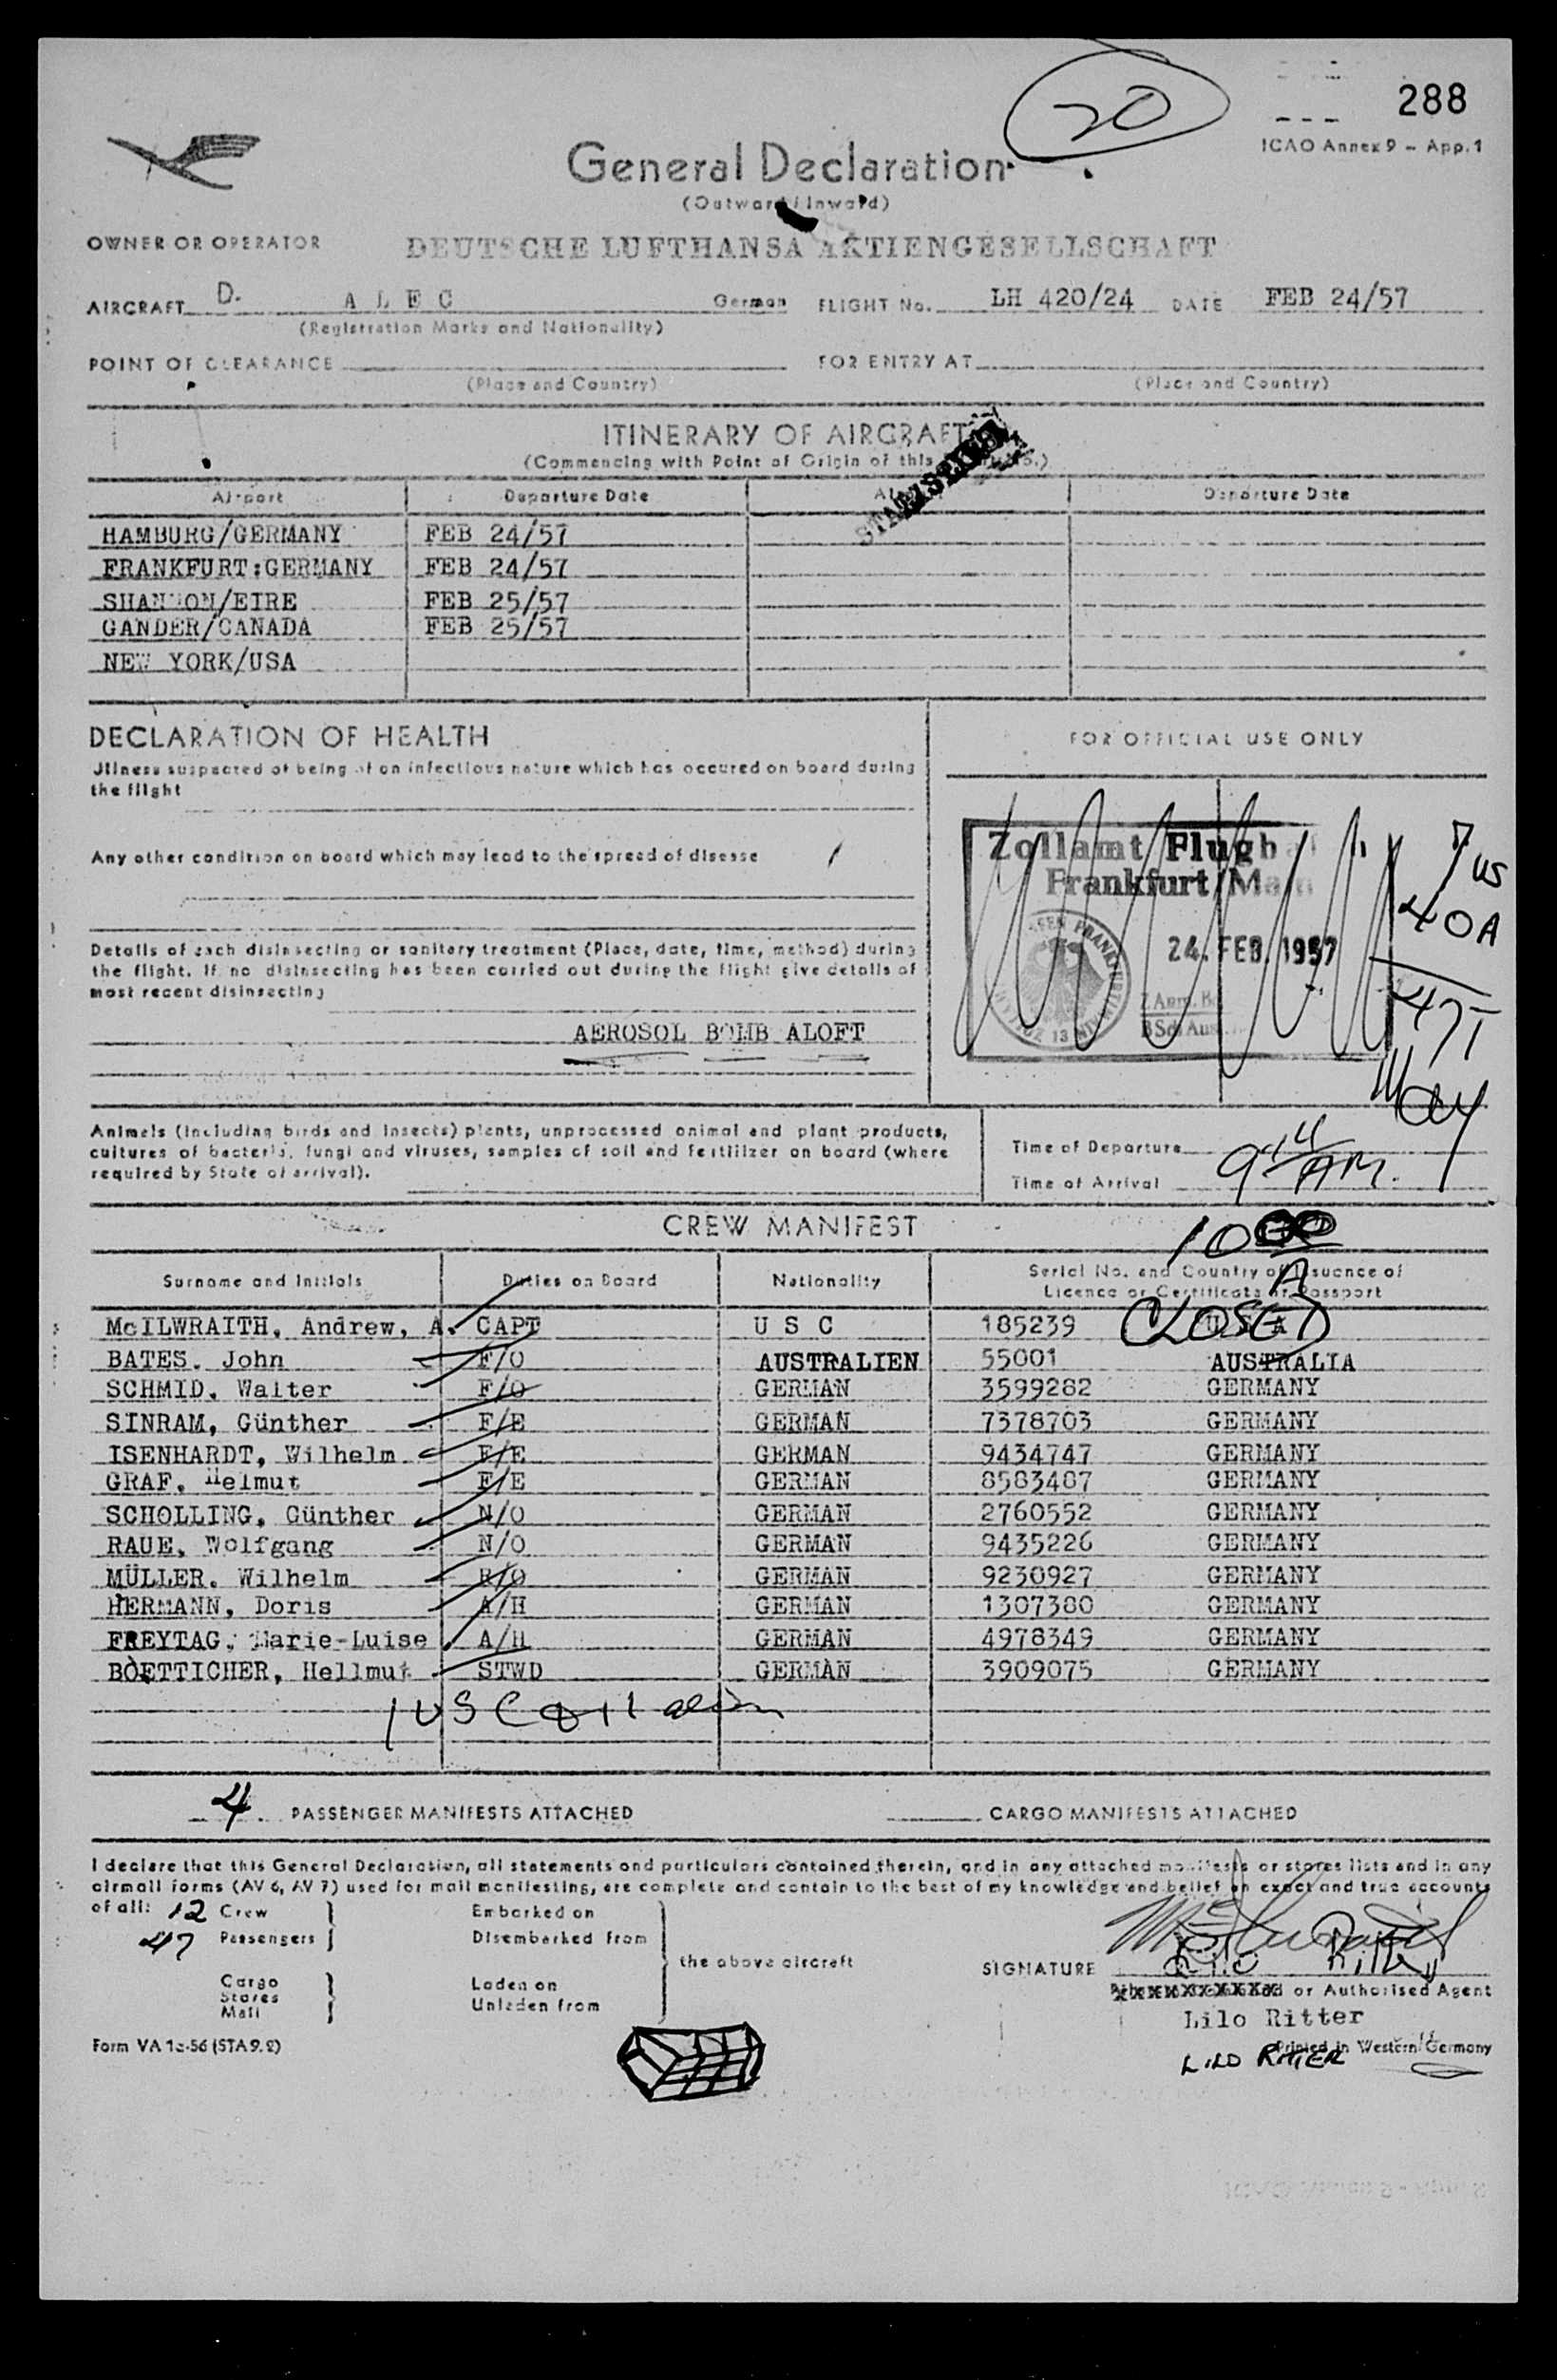 20
288
ICAO Annex 9 - App. 1
General Declaration
(Outward/Inward)
OWNER OR OPERATOR DEUTSCHE LUFTHANSA AKTIENGESELLSCHAFT
AIRCRAFT D. A L E C German FLIGHT No. LH 420/24 DATE FEB 24/57
(Registration Marks and Nationality)
POINT OF CLEARANCE FOR ENTRY AT
(Place and Country) (Place and Country)
ITINERARY OF AIRCRAFT
(Commencing with Point of Origin of this
Airport Departure Date Departure Date
HAMBURG/GERMANY FEB 24/57
FRANKFURT:GERMANY FEB 24/57
SHANNON/EIRE FEB 25/57
GANDER/CANADA FEB 25/57
NEW YORK/USA
DECLARATION OF HEALTH
FOR OFFICIAL USE ONLY
Jllness suspected of being of an infectious nature which has occured on board during
the flight
Any other condition on board which may lead to the spread of disease
Zollamt Flugh
Frankfurt/Main
24. FEB. 1957
7 US
40 A
47 T
Details of each disinsecting or sanitary treatment (Place, date, time, method) during
the flight. If no disinsecting has been carried out during the flight give details of
most recent disinsecting
AEROSOL BOMB ALOFT
Animals (including birds and insects) plants, unprocessed animal and plant products,
cultures of bacteria, fungi and viruses, samples of soil and fertilizer on board (where
required by State of arrival).
Time of Departure
Time of Arrival 9 14 AM.
CREW MANIFEST
10 00 A
CLOSED
Surname and Initials Duties on Board Nationality Serial No. and Country of Issuance of
Licence or Certificate or Passport
McILWRAITH, Andrew, A. CAPT U S C 185239 U S A
BATES. John F/O AUSTRALIEN 55001 AUSTRALIA
SCHMID, Walter F/O GERMAN 3599282 GERMANY
SINRAM, Günther F/E GERMAN 7378703 GERMANY
ISENHARDT, Wilhelm F/E GERMAN 9434747 GERMANY
GRAF, Helmut F/E GERMAN 8583487 GERMANY
SCHOLLING, Günther N/O GERMAN 2760552 GERMANY
RAUE, Wolfgang N/O GERMAN 9435226 GERMANY
MÜLLER. Wilhelm R/O GERMAN 9230927 GERMANY
HERMANN, Doris A/H GERMAN 1307380 GERMANY
FREYTAG, Marie-Luise A/H GERMAN 4978349 GERMANY
BOETTICHER, Hellmut STWD GERMAN 3909075 GERMANY
1 USC & 11 alien
4 PASSENGER MANIFESTS ATTACHED CARGO MANIFESTS ATTACHED
I declare that this General Declaration, all statements and particulars contained therein, and in any attached manifests or stores lists and in any
airmail forms (AV 6, AV 7) used for mail manifesting, are complete and contain to the best of my knowledge and belief an exact and true accounts
of all: 12 Crew Embarked on
47 Passengers Disembarked from
the above aircraft
Cargo Laden on
Stores Unladen from
Mail
SIGNATURE Lilo Ritter
or Authorised Agent
Lilo Ritter
Form VA 1a-56 (STA 9.2)
Printed in Western Germany
LILO RITTER